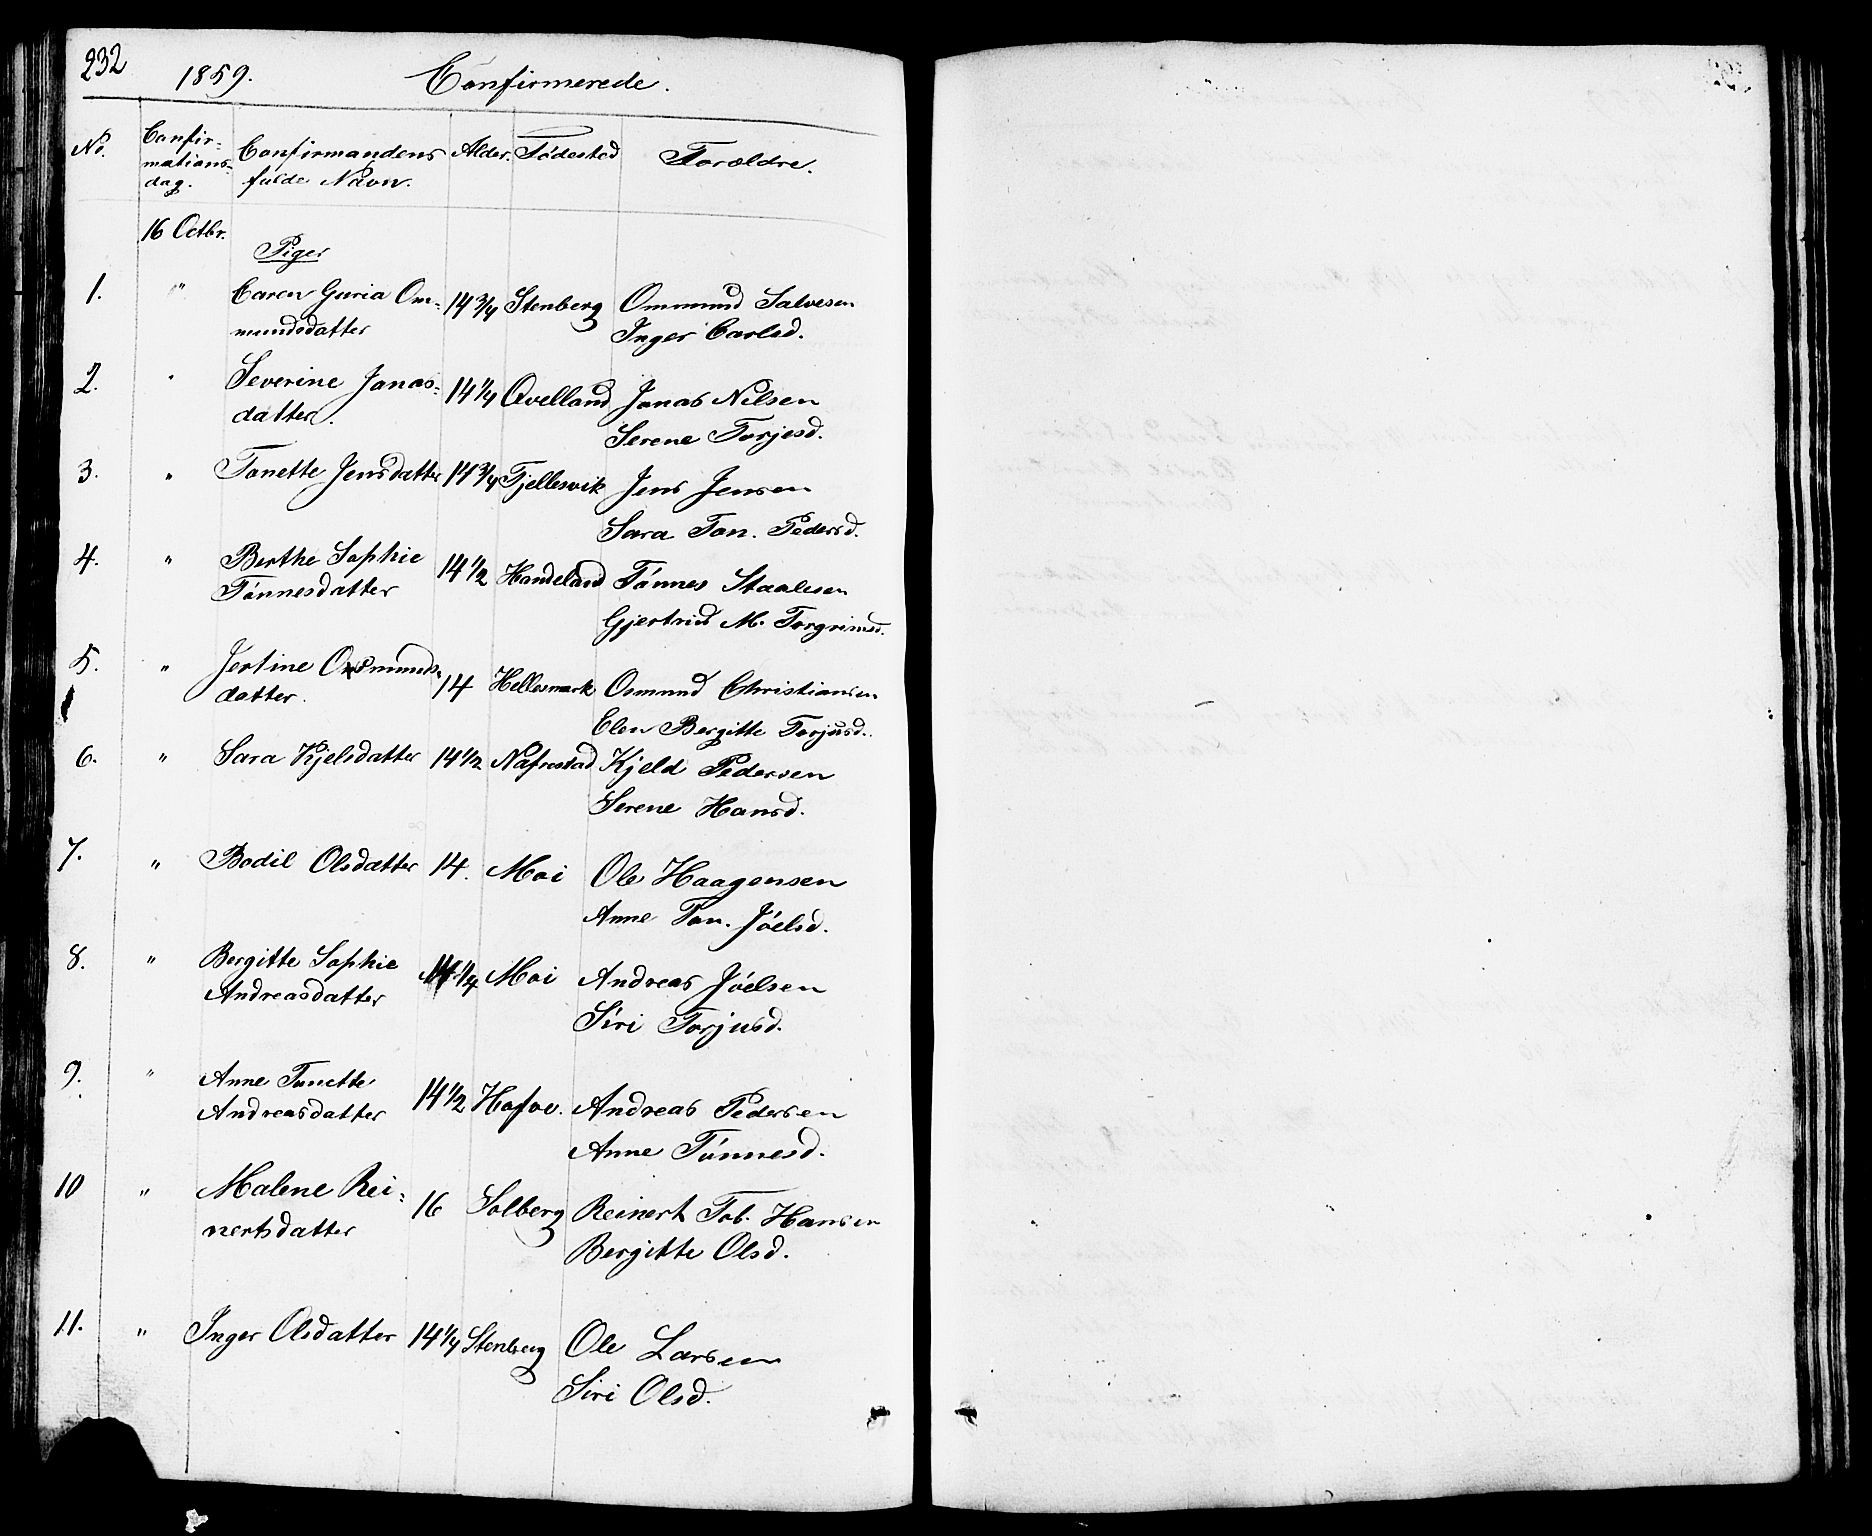 232
1859. Confirmerede.
No. Confir- Confirmandens Alder. Fødested Forældre.
mations- fulde Navn.
dag.
16 Octbr.
Piger
1. " Caren Guria Om- 14 3/4 Stenberg Ommund Salvesen
mundsdatter Inger Carlsd.
2. " Severine Jonas- 14 1/4 Qvelland Jonas Nilsen
datter. Serene Torjesd.
3. " Tonette Jensdatter 14 3/4 Fjellesvik Jens Jensen
Sara Ton. Pedersd.
4. " Berthe Sophie 14 1/2 Handeland Tönnes Staalesen
Tönnesdatter Gjertrud M. Torgrimsd.
5. " Jertine Osmunds- 14 Hellesmark Osmund Christiansen
datter. Elen Bergitte Torjusd.
6. " Sara Kjelsdatter 14 1/2 Nafrestad Kjeld Pedersen
Serene Hansd.
7. " Bodil Olsdatter 14. Moi Ole Haagensen
Anne Ton. Jóelsd.
8. " Bergitte Sophie 14 1/4 Moi Andreas Jóelsen
Andreasdatter Siri Torjusd.
9. " Anne Tonette 14 1/2 Hofve. Andreas Pedersen
Andreasdatter Anne Tönnesd.
10 " Malene Rei- 16 Solberg Reinert Tob. Hansen
nertsdatter Bergitte Olsd.
11. " Inger Olsdatter 14 1/4 Stenberg Ole Larsen
Siri Olsd.